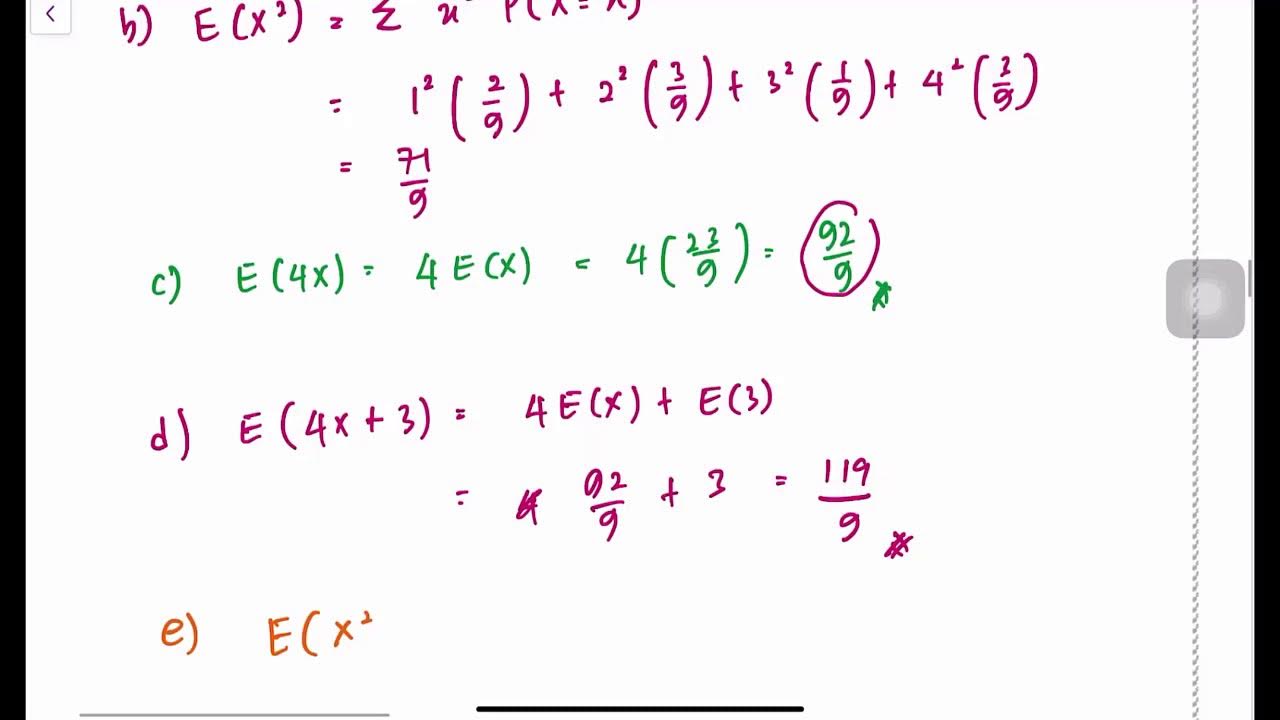 b) E(X²) = Σ x² P(X=x)
= 1² (2/9) + 2² (3/9) + 3² (1/9) + 4² (3/9)
= 71/9
c) E(4X) = 4E(X) = 4(23/9) = 92/9
d) E(4X+3) = 4E(X) + E(3)
= 92/9 + 3 = 119/9
e) E(X²